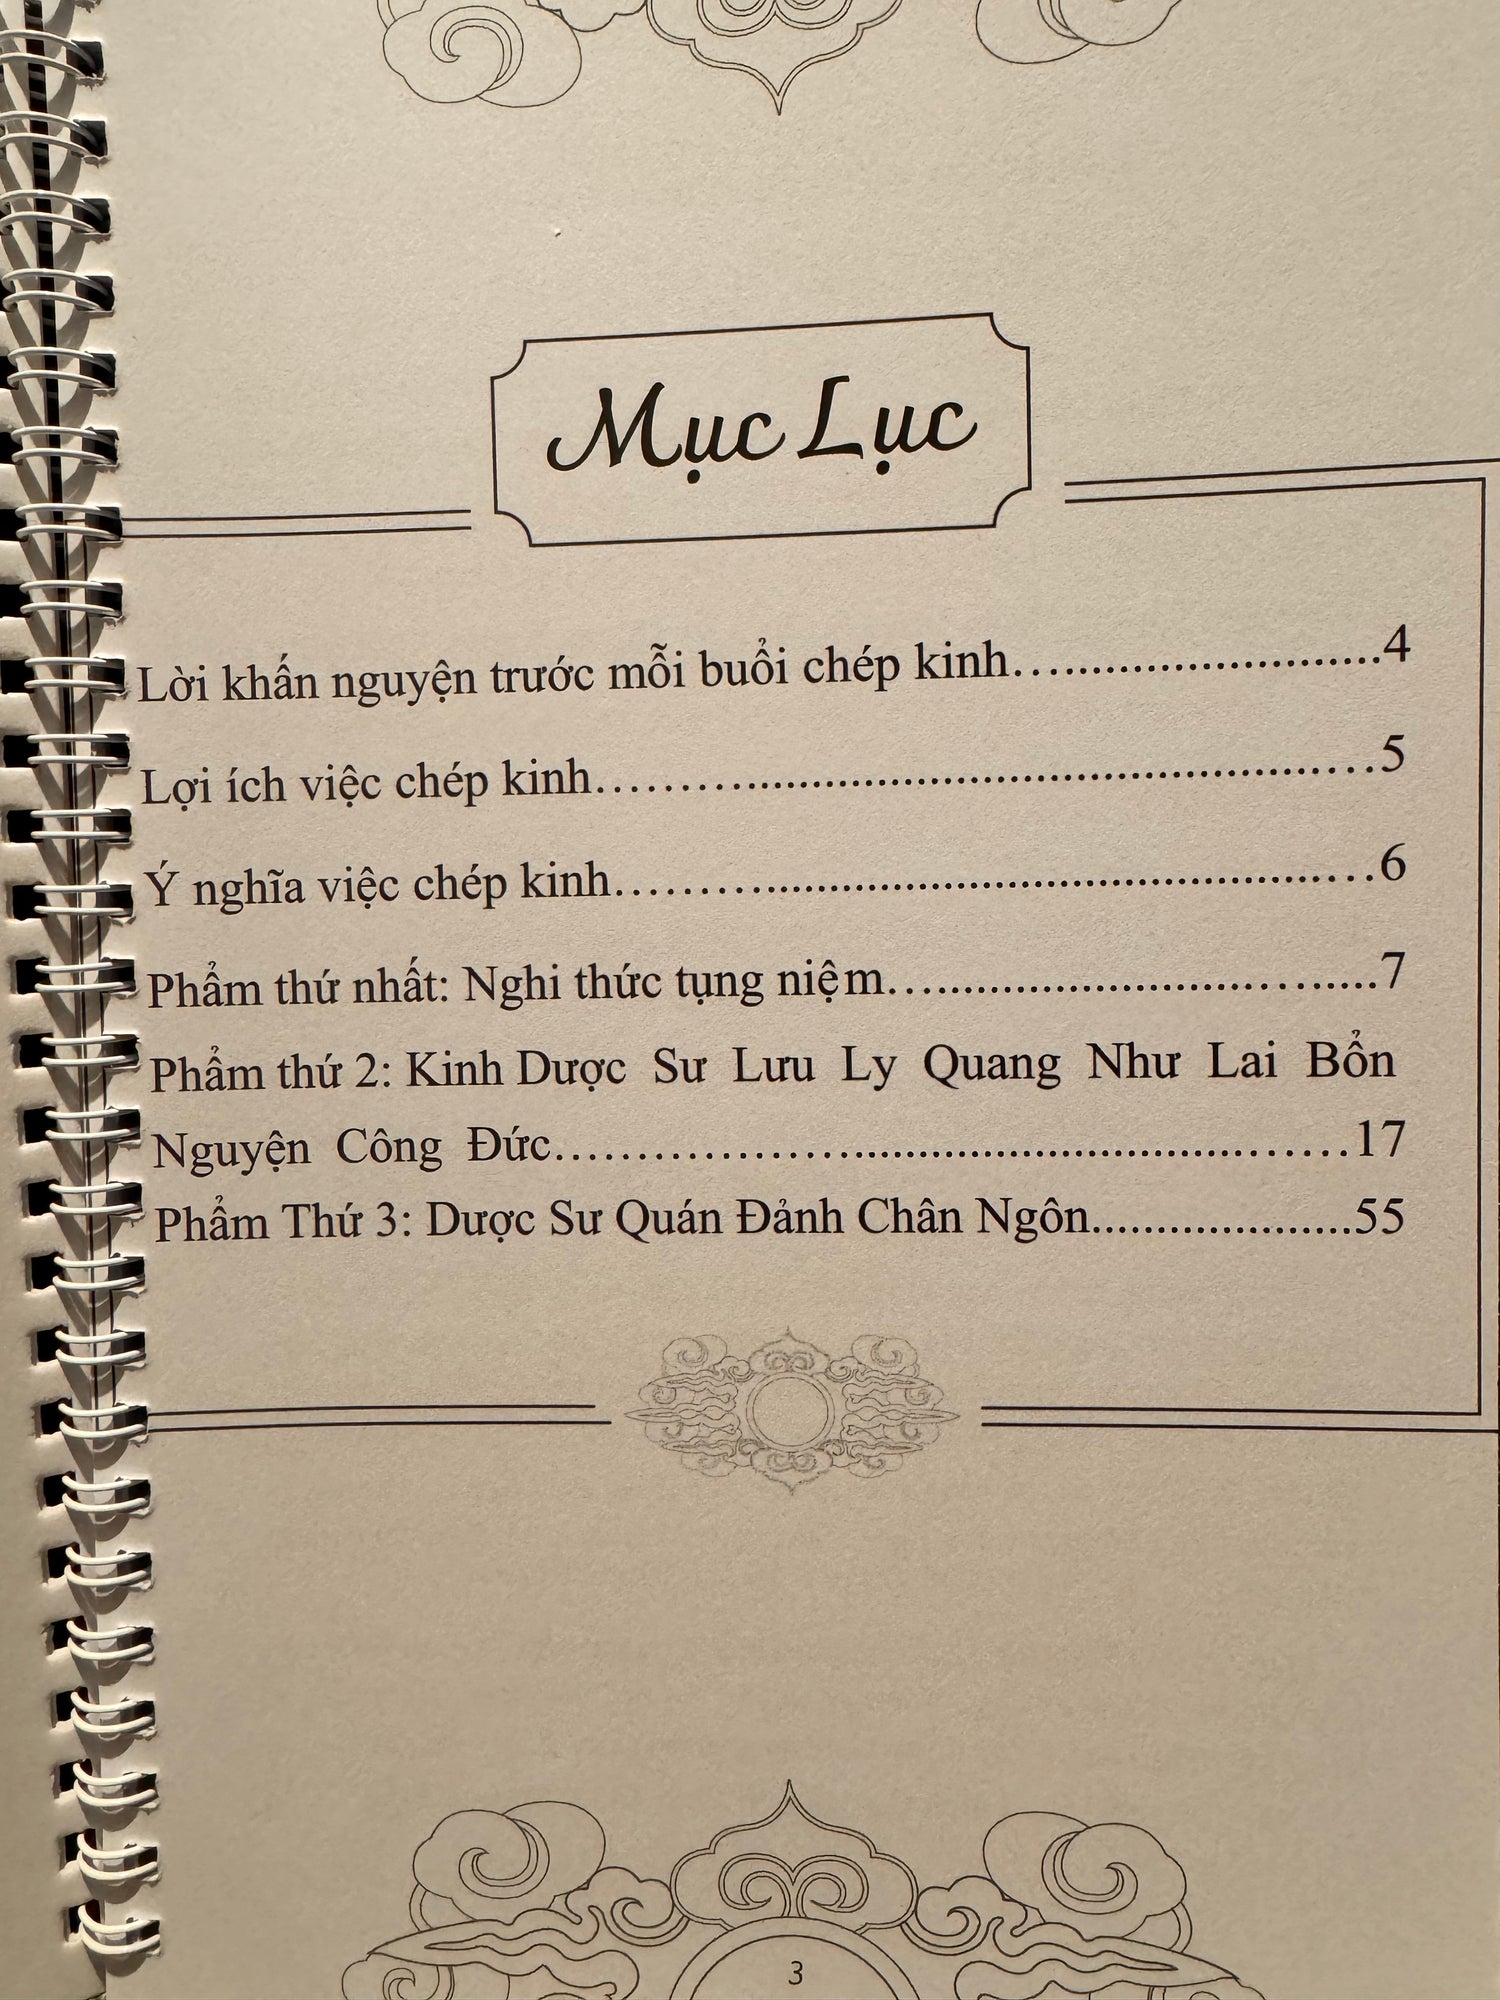 Mục Lục
Lời khấn nguyện trước mỗi buổi chép kinh................................4
Lợi ích việc chép kinh............................................................5
Ý nghĩa việc chép kinh...........................................................6
Phẩm thứ nhất: Nghi thức tụng niệm........................................7
Phẩm thứ 2: Kinh Dược Sư Lưu Ly Quang Như Lai Bổn
Nguyện Công Đức................................................................17
Phẩm Thứ 3: Dược Sư Quán Đảnh Chân Ngôn.....................55
3